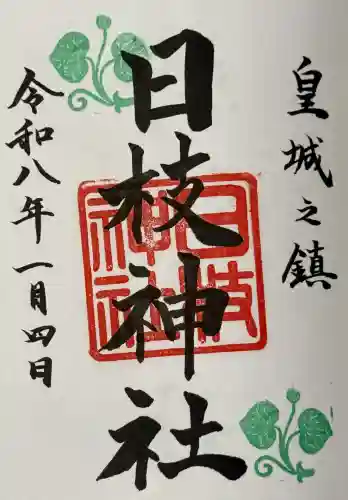 皇城之鎮
日枝神社
日枝神社
令和八年一月四日